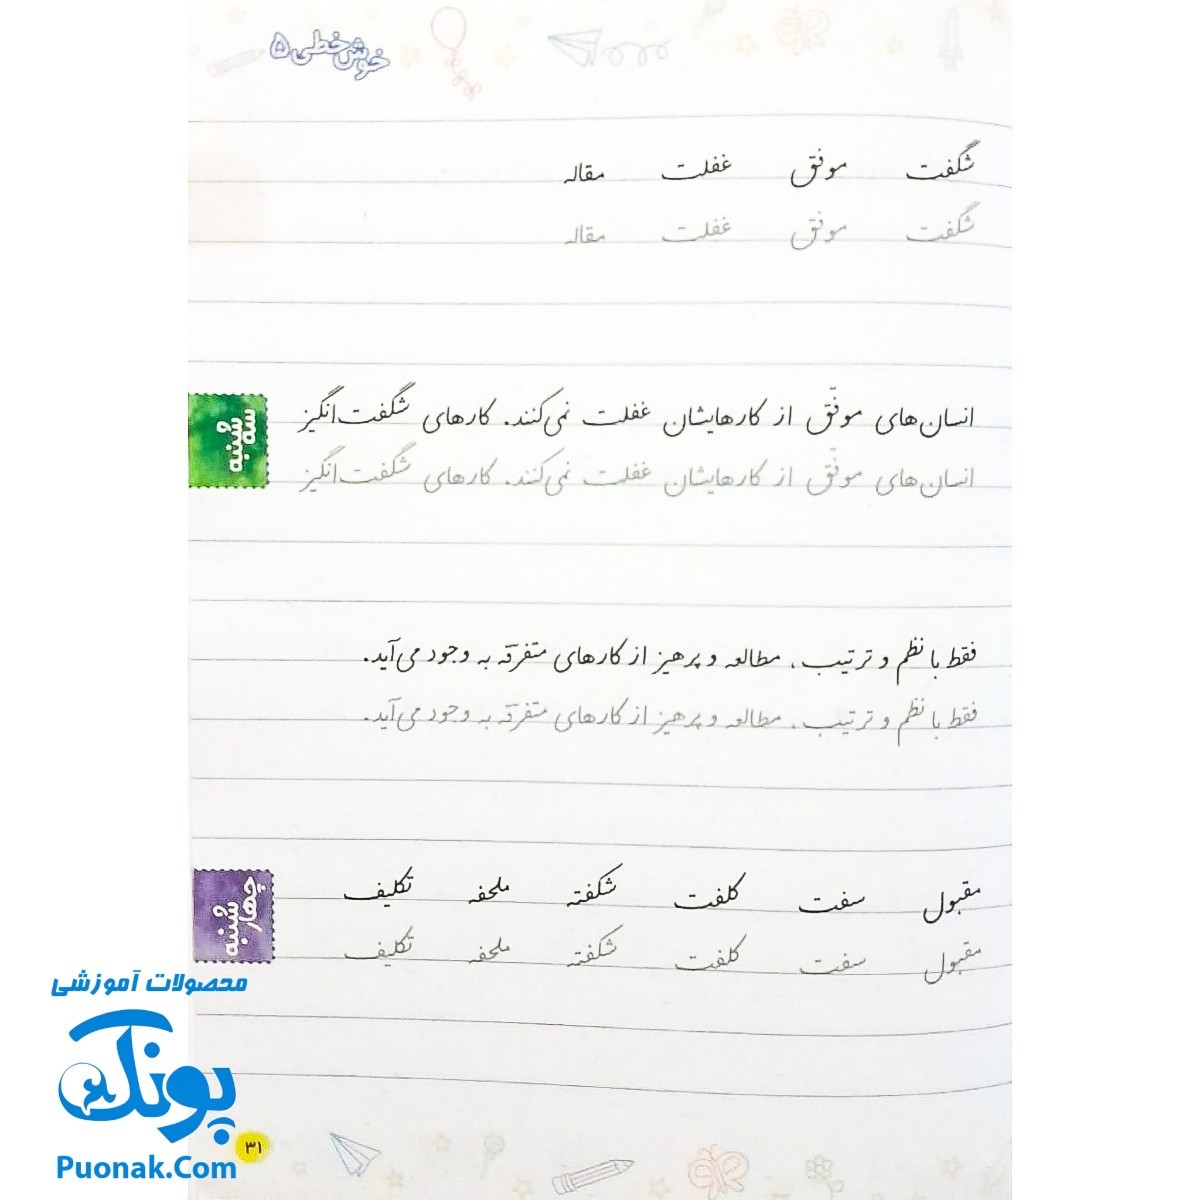 خوش‌خطی ۵
شگفت موفق غفلت مقاله
شگفت موفق غفلت مقاله
انسان‌های موفّق از کارهایشان غفلت نمی‌کنند. کارهای شگفت‌انگیز
سه شنبه
انسان‌های موفّق از کارهایشان غفلت نمی‌کنند. کارهای شگفت‌انگیز
فقط با نظم و ترتیب، مطالعه و پرهیز از کارهای متفرقه به وجود می‌آید.
فقط با نظم و ترتیب، مطالعه و پرهیز از کارهای متفرقه به وجود می‌آید.
مقبول سفت کلفت شکفته ملحفه تکلیف
چهار شنبه
مقبول سفت کلفت شکفته ملحفه تکلیف
محصولات آموزشی
پونک
۳۱
Puonak.Com